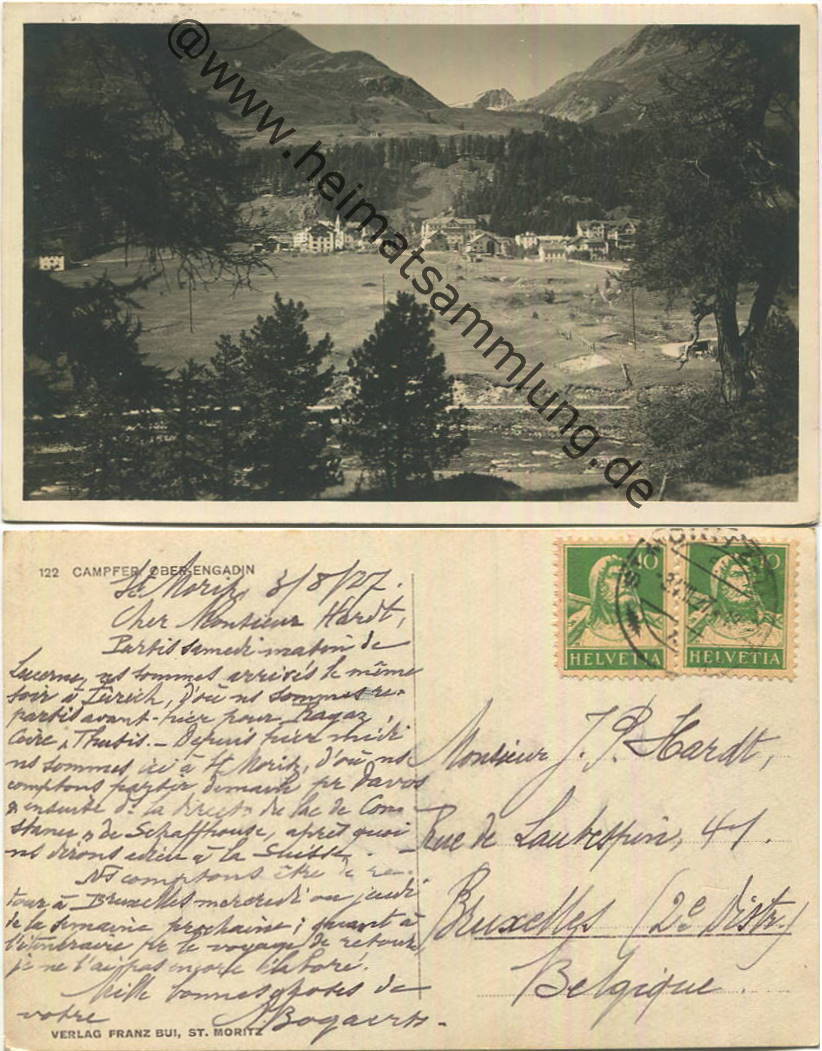 @www.heimatsammlung.de
122 CAMPFER OBER-ENGADIN
St Moritz, 3/8/27.
Cher Monsieur Hardt,
Partis samedi matin de
Lucerne, ns sommes arrivés le même
soir à Zürich, d'où ns sommes re-
partis avant-hier pour Ragaz,
Coire, Thusis. - Depuis hier midi
ns sommes ici à St Moritz, d'où ns
comptons partir demain pr Davos
& ensuite ds la direct° du lac de Con-
stance & de Schaffhouse, après quoi
ns dirons adieu à la Suisse. -
Ns comptons être de re-
tour à Bruxelles mercredi ou jeudi
de la semaine prochaine; quant à
l'itinéraire pr le voyage de retour,
je ne l'ai pas encore élaboré.
Mille bonnes choses de
votre A. Bogaerts.
VERLAG FRANZ BUI, ST. MORITZ
40 10
HELVETIA HELVETIA
ST. MORITZ
Monsieur J. P. Hardt,
Rue de Laubespin, 41.
Bruxelles (2e Distr.)
Belgique.